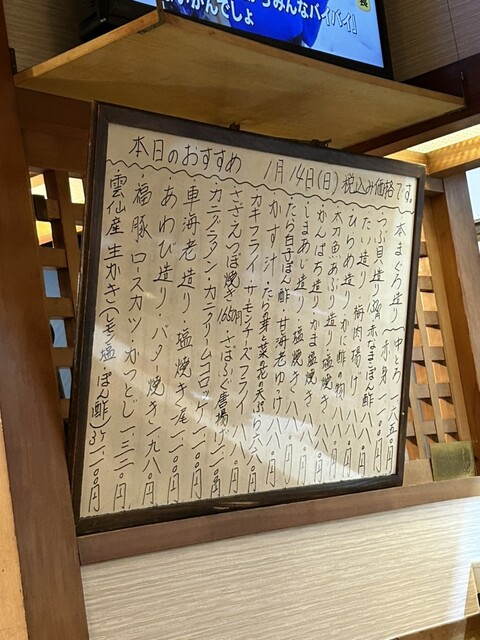 みんなバイバイ』
かんでしょ
長
本日のおすすめ 1月14日(日) 税込み価格です。
本まぐろ造り 中とろ 一六五〇円
赤身 一一〇〇円
つぶ貝造り 赤なまこぽん酢 八八〇円
たい造り・梅肉揚げ 八八〇円
ひらめ造り・かに酢の物 八八〇円
太刀魚あぶり造り・塩焼き 八八〇円
かんぱち造り・かま塩焼き 八八〇円
しまあじ造り・塩焼き 八八〇円
たら白子ぽん酢・甘海老ゆけ 八八〇円
かす汁・たらの芽と菜の花の天ぷら 六六〇円
カキフライ・サーモンチーズフライ 八八〇円
さざえつぼ焼き 1650円・さばふぐ唐揚げ 一一〇〇円
カニグラタン・カニクリームコロッケ 一一〇〇円
車海老造り・塩焼き 二尾 一一〇〇円
あわび造り・バター焼き 二九八〇円
福豚ロースカツ・かつとじ 一三二〇円
雲仙産生かき(レモン塩・ぽん酢) 3ケ 一一〇〇円